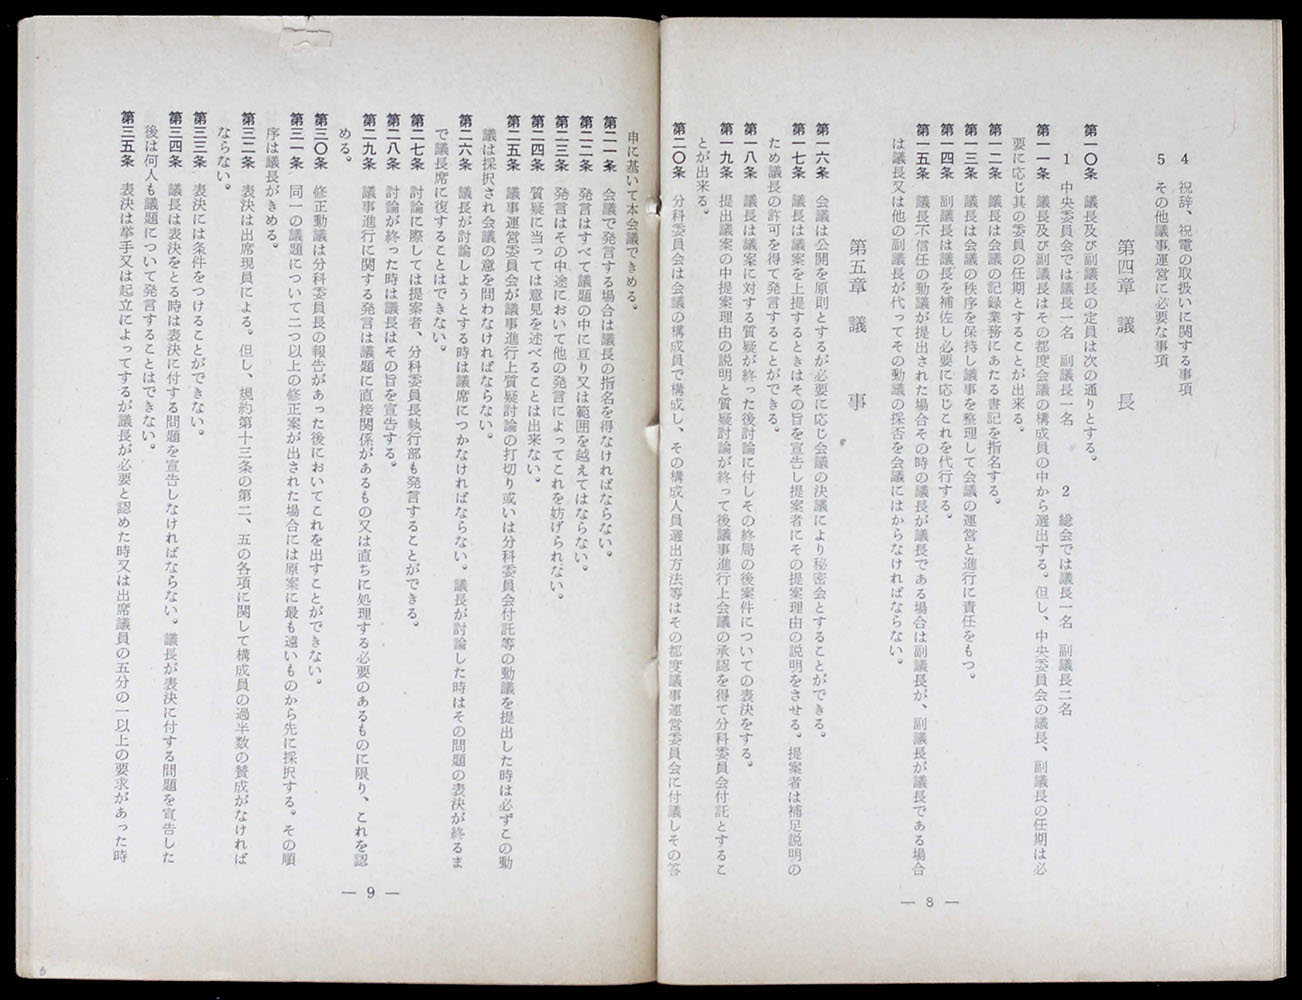 4 祝辞、祝電の取扱いに関する事項
5 その他議事運営に必要な事項
第四章 議長
第一〇条 議長及び副議長の定員は次の通りとする。
1 中央委員会では議長一名 副議長一名 2 総会では議長一名 副議長二名
第一一条 議長及び副議長はその都度会議の構成員の中から選出する。但し、中央委員会の議長、副議長の任期は必
要に応じ其の委員の任期とすることが出来る。
第一二条 議長は会議の記録業務にあたる書記を指名する。
第一三条 議長は会議の秩序を保持し議事を整理して会議の運営と進行に責任をもつ。
第一四条 副議長は議長を補佐し必要に応じこれを代行する。
第一五条 議長不信任の動議が提出された場合その時の議長が議長である場合は副議長が、副議長が議長である場合
は議長又は他の副議長が代ってその動議の採否を会議にはからなければならない。
第五章 議事
第一六条 会議は公開を原則とするが必要に応じ会議の決議により秘密会とすることができる。
第一七条 議長は議案を上提するときはその旨を宣告し提案者にその提案理由の説明をさせる。提案者は補足説明の
ため議長の許可を得て発言することができる。
第一八条 議長は議案に対する質疑が終った後討論に付しその終局の後案件についての表決をする。
第一九条 提出議案の中提案理由の説明と質疑討論が終って後議事進行上会議の承認を得て分科委員会付託とするこ
とが出来る。
第二〇条 分科委員会は会議の構成員で構成し、その構成人員選出方法等はその都度議事運営委員会に付議しその答
— 8 —
申に基いて本会議できめる。
第二一条 会議で発言する場合は議長の指名を得なければならない。
第二二条 発言はすべて議題の中に亘り又は範囲を越えてはならない。
第二三条 発言はその中途において他の発言によってこれを妨げられない。
第二四条 質疑に当っては意見を述べることは出来ない。
第二五条 議事運営委員会が議事進行上質疑討論の打切り或いは分科委員会付託等の動議を提出した時は必ずこの動
議は採択され会議の意を問わなければならない。
第二六条 議長が討論しようとする時は議席につかなければならない。議長が討論した時はその問題の表決が終るま
で議長席に復することはできない。
第二七条 討論に際しては提案者、分科委員長執行部も発言することができる。
第二八条 討論が終った時は議長はその旨を宣告する。
第二九条 議事進行に関する発言は議題に直接関係があるもの又は直ちに処理する必要のあるものに限り、これを認
める。
第三〇条 修正動議は分科委員長の報告があった後においてこれを出すことができない。
第三一条 同一の議題について二つ以上の修正案が出された場合には原案に最も遠いものから先に採択する。その順
序は議長がきめる。
第三二条 表決は出席現員による。但し、規約第十三条の第二、五の各項に関して構成員の過半数の賛成がなければ
ならない。
第三三条 表決には条件をつけることができない。
第三四条 議長は表決をとる時は表決に付する問題を宣告しなければならない。議長が表決に付する問題を宣告した
後は何人も議題について発言することはできない。
第三五条 表決は挙手又は起立によってするが議長が必要と認めた時又は出席議員の五分の一以上の要求があった時
— 9 —